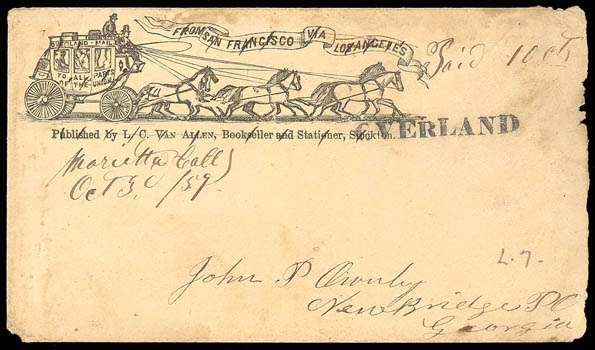 FROM SAN FRANCISCO VIA LOS ANGELES
OVERLAND-MAIL
TO ALL PARTS
OF THE UNION
Paid 10 cts
Published by L. C. VAN ALLEN, Bookseller and Stationer, Stockton.
OVERLAND
Marietta Cal
Oct 3d /59
L.7.
John P Ownby
New Bridge P.O
Georgia